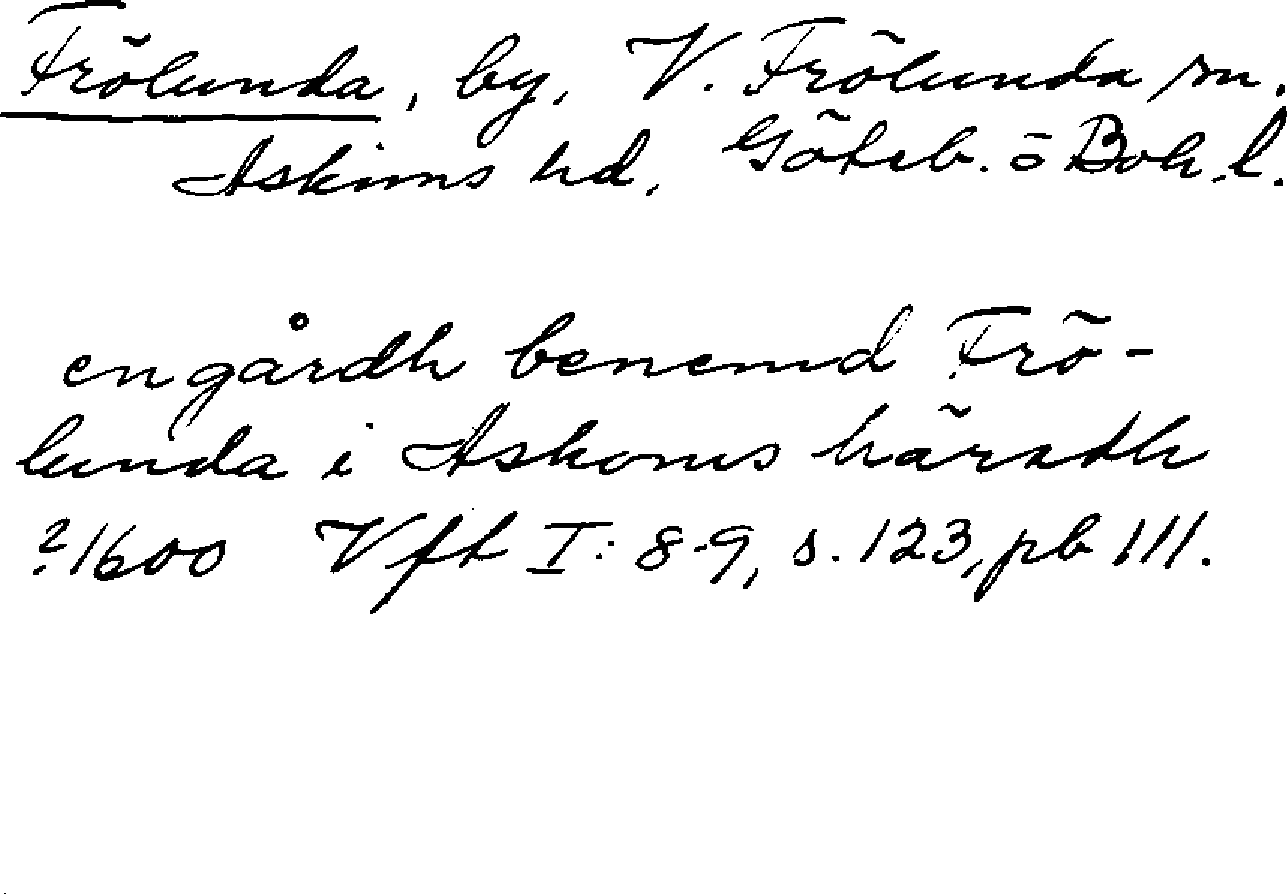 Frölunda, by, V. Frölunda sn.
Askims hd, Göteb. o Boh. l.
en gårdh benemd Frö-
lunda i Askoms häradh
? 1600 Vft I: 8-9, s. 123, pb 111.